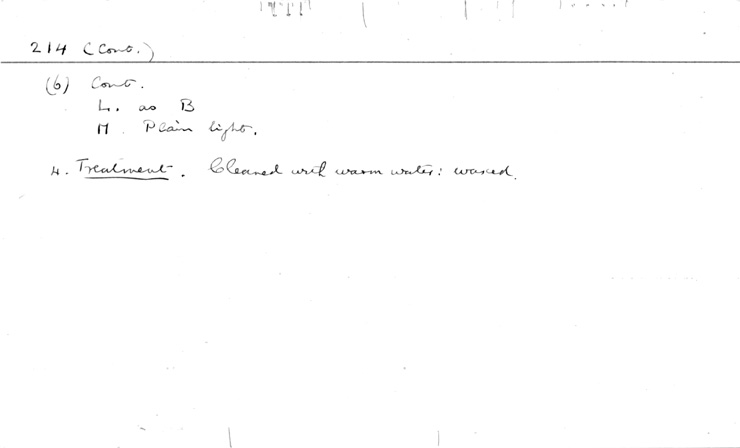 214 (Cont.)
(6) Cont.
L. as B
M. Plain light.
4. Treatment. Cleaned with warm water: waxed.